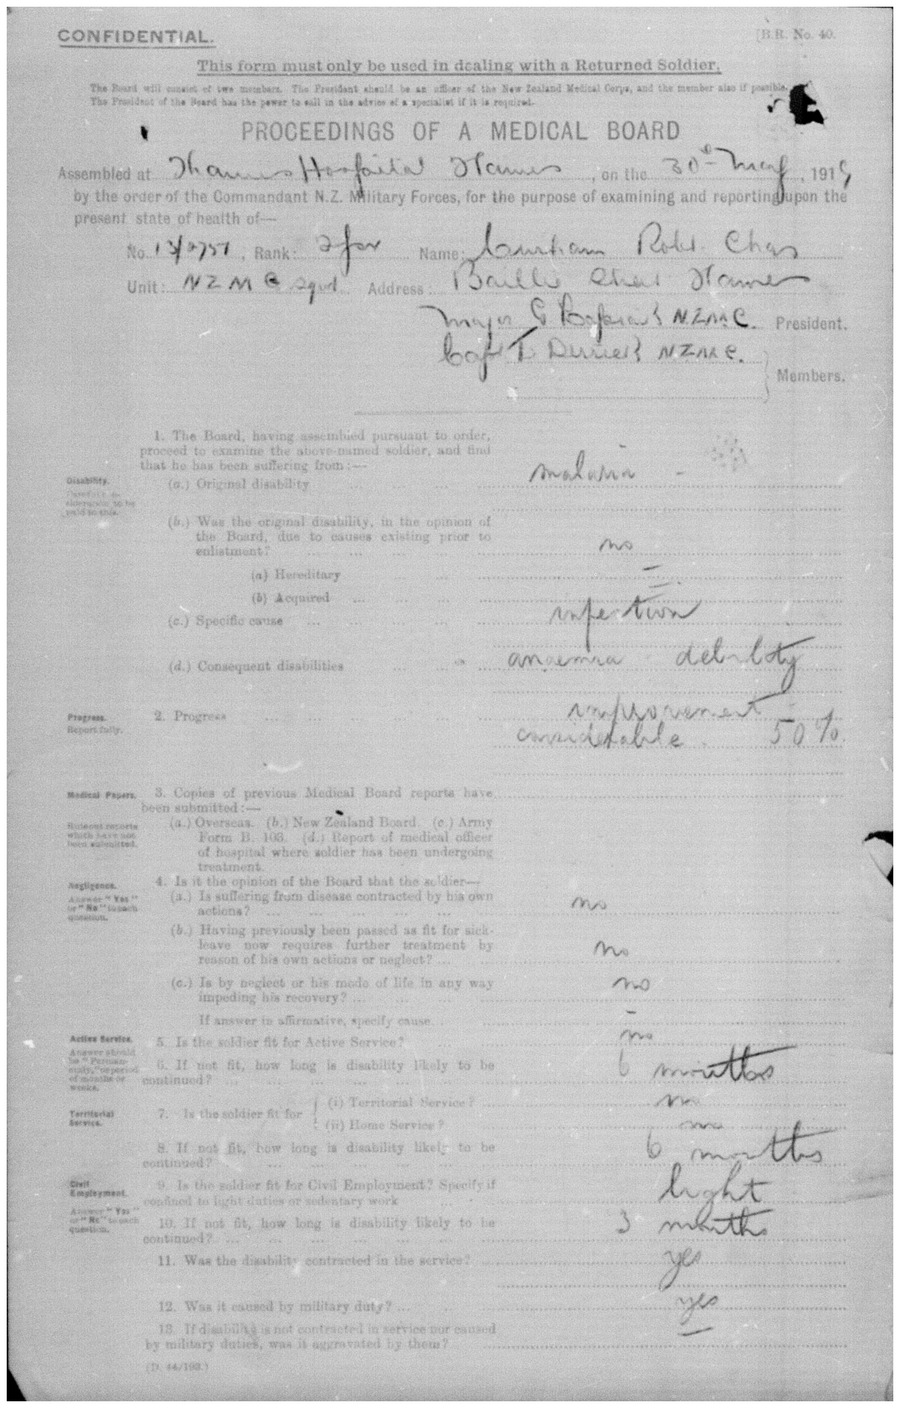 CONFIDENTIAL.
[B.R. No. 40.
This form must only be used in dealing with a Returned Soldier.
The Board will consist of two members. The President should be an officer of the New Zealand Medical Corps, and the member also if possible.
The President of the Board has the power to call in the advice of a specialist if it is required.
PROCEEDINGS OF A MEDICAL BOARD
Assembled at Thames Hospital Thames, on the 30th May, 1919,
by the order of the Commandant N.Z. Military Forces, for the purpose of examining and reporting upon the
present state of health of—
No. Rank: Name: Robt. Chas
Unit: Address: Thames
Major NZMC. President.
Capt NZMC.
Members.
1. The Board, having assembled pursuant to order,
proceed to examine the above-named soldier, and find
that he has been suffering from:—
Disability.
(a.) Original disability malaria -
(b.) Was the original disability, in the opinion of
the Board, due to causes existing prior to
enlistment? no
(a) Hereditary –
(b) Acquired –
(c.) Specific cause infection
(d.) Consequent disabilities anaemia debility
Progress.
Report fully.
2. Progress improvement
considerable. 50%.
Medical Papers.
3. Copies of previous Medical Board reports have
been submitted:—
Ridout reports
which have not
been submitted.
(a.) Overseas. (b.) New Zealand Board. (c.) Army
Form B. 103. (d.) Report of medical officer
of hospital where soldier has been undergoing
treatment.
Negligence.
Answer "Yes"
or "No" to each
question.
4. Is it the opinion of the Board that the soldier—
(a.) Is suffering from disease contracted by his own
actions? no
(b.) Having previously been passed as fit for sick-
leave now requires further treatment by
reason of his own actions or neglect? no
(c.) Is by neglect or his mode of life in any way
impeding his recovery? no
If answer in affirmative, specify cause –
Active Service.
Answer should
be "Perman-
ently," or period
of months or
weeks.
5. Is the soldier fit for Active Service? no
6. If not fit, how long is disability likely to be
continued? 6 months
Territorial
Service.
7. Is the soldier fit for
(i) Territorial Service? no
(ii) Home Service? no
8. If not fit, how long is disability likely to be
continued? 6 months
Civil
Employment.
Answer "Yes"
or "No" to each
question.
9. Is the soldier fit for Civil Employment? Specify if
confined to light duties or sedentary work light
10. If not fit, how long is disability likely to be
continued? 3 months
11. Was the disability contracted in the service? yes
12. Was it caused by military duty? yes
13. If disability is not contracted in service nor caused
by military duties, was it aggravated by them? –
(D. 44/193.)